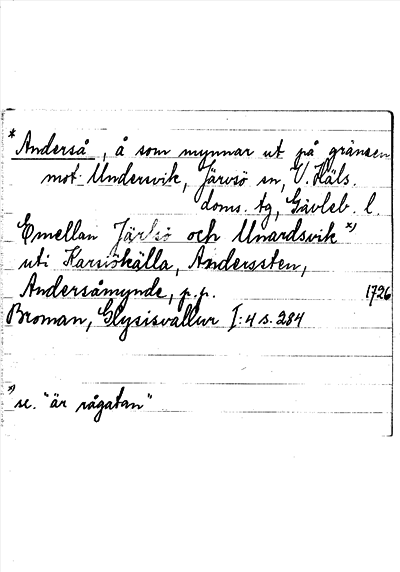 * Anderså, å som mynnar ut på gränsen
mot Undersvik, Järvsö sn, V. Häls.
doms. tg, Gävleb. l.
Emellan Järfsö och Unardsvik *)
uti Karsiökälla, Anderssten,
Andersåmynde, p.p. 1726
Broman, Glysisvallur I:4 s. 284
*) sc. "är rågatan"